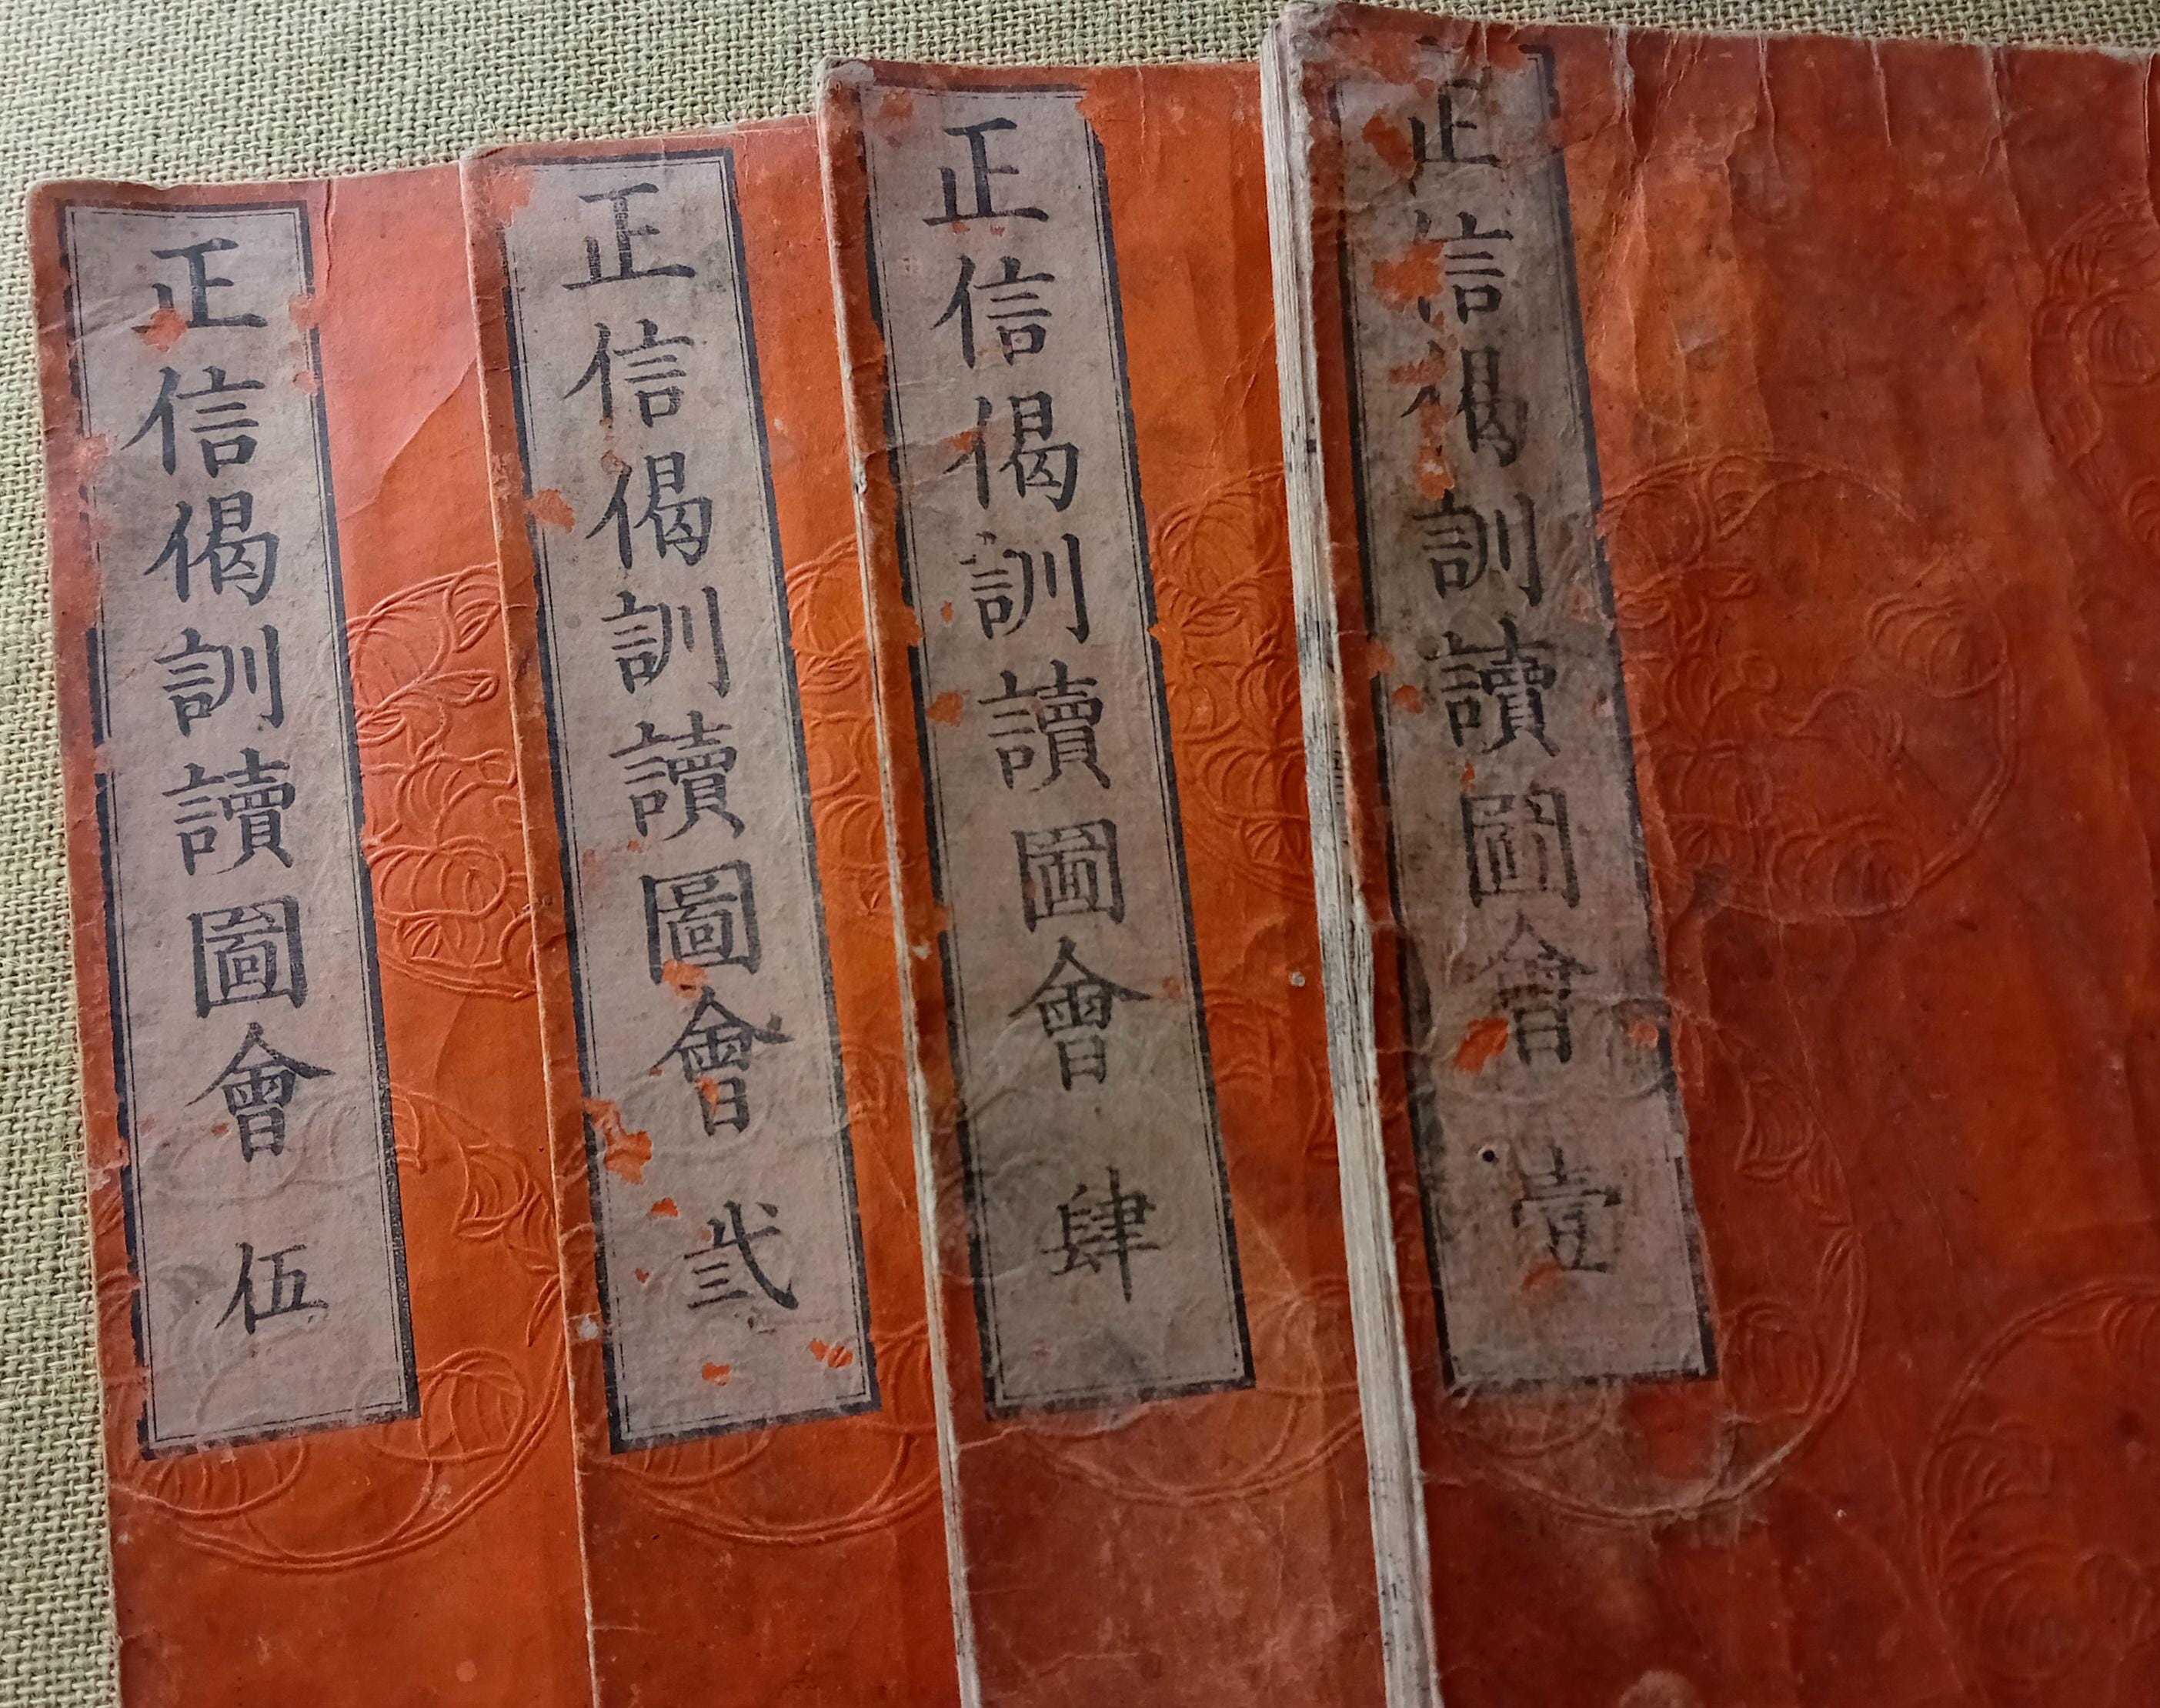 正信偈訓讀圖會 壹
正信偈訓讀圖會 肆
正信偈訓讀圖會 弎
正信偈訓讀圖會 伍